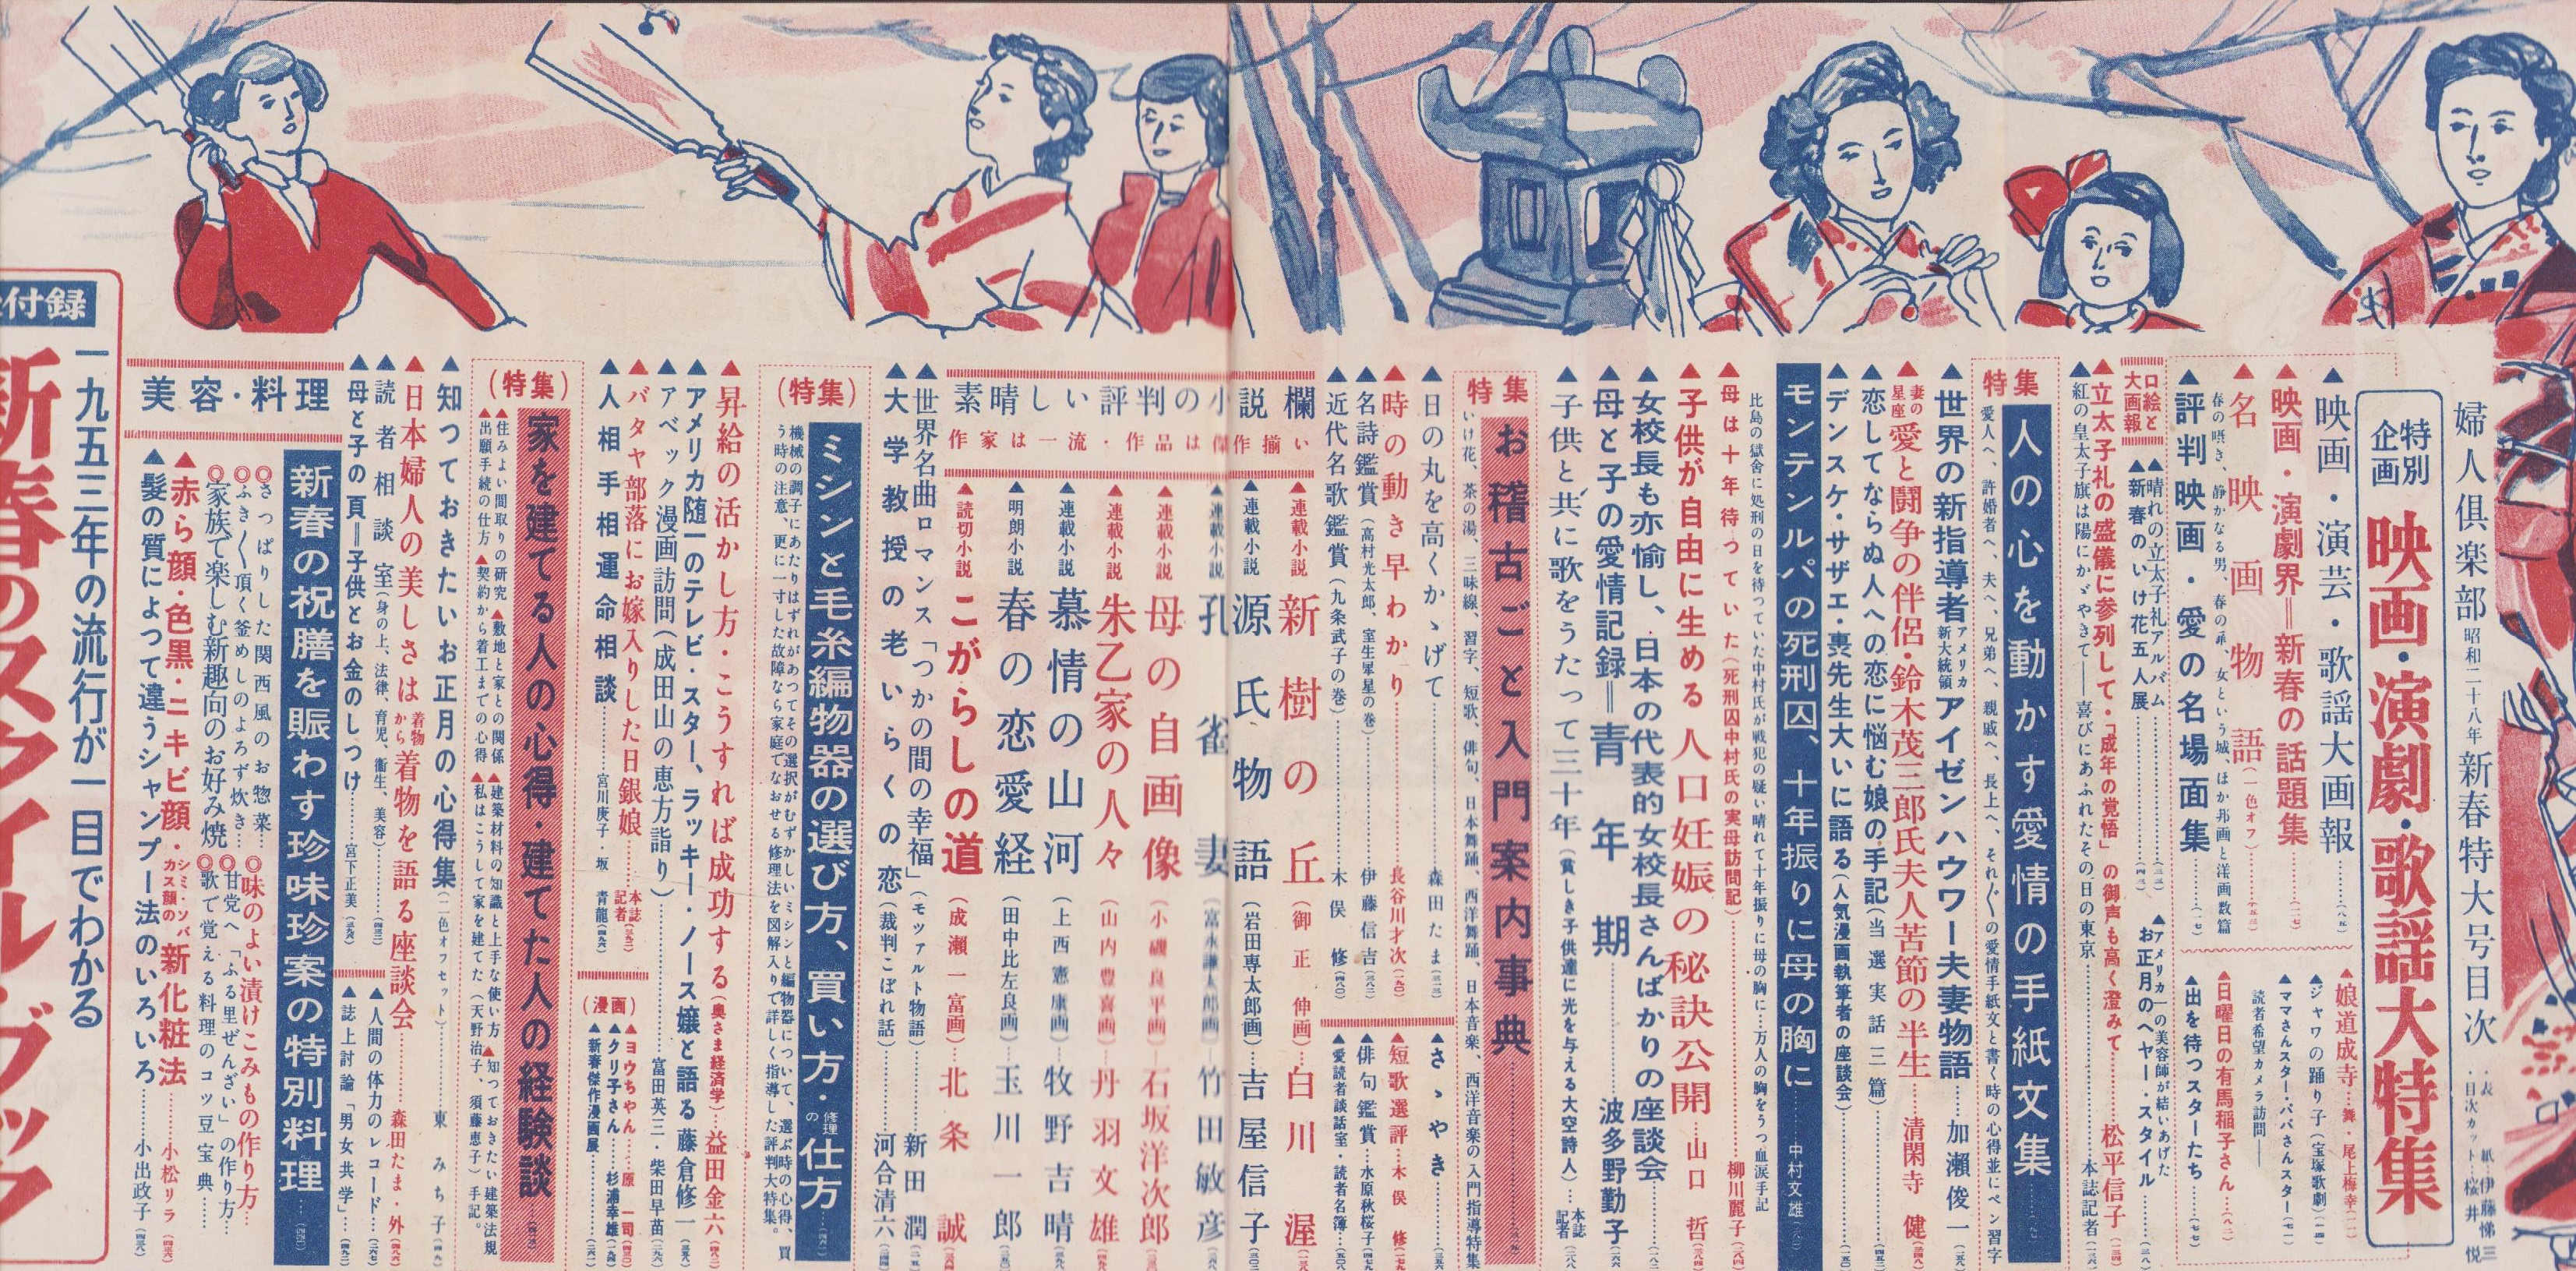 婦人倶楽部 昭和二十八年 新春特大号目次
・表紙…伊藤悌三
・目次カット…桜井悦
特別企画
映画・演劇・歌謡大特集
▲映画・演芸・歌謡大画報
▲映画・演劇界=新春の話題集
▲名映画物語(一色オフ)
春の囁き、静かなる男、春の乖、女という城、ほか邦画と洋画数篇
▲評判映画・愛の名場面集
娘道成寺…舞・尾上梅幸
▲ジャワの踊り子(宝塚歌劇)
▲ママさんスター・パパさんスター
読者希望カメラ訪問
▲日曜日の有馬稲子さん
▲出を待つスターたち
口絵と大画報
▲晴れの立太子礼アルバム
▲新春のいけ花五人展
▲アメリカ一の美容師が結いあげた
お正月のヘヤー・スタイル
▲立太子礼の盛儀に参列して・「成年の覚悟」の御声も高く澄みて…松平信子
▲紅の皇太子旗は陽にかゞやきて―喜びにあふれたその日の東京…本誌記者
特集
人の心を動かす愛情の手紙文集
愛人へ、許婚者へ、夫へ、兄弟へ、親戚へ、長上へ、それ〲の愛情手紙文と書く時の心得並にペン習字
▲世界の新指導者 アメリカ新大統領 アイゼンハウワー夫妻物語…加瀬俊一
▲妻の星座 愛と闘争の伴侶・鈴木茂三郎氏夫人苦節の半生…清閑寺健
▲恋してならぬ人への恋に悩む娘の手記(当選実話三篇)
▲デンスケ・サザエ・裏先生大いに語る(人気漫画執筆者の座談会)
モンテンルパの死刑囚、十年振りに母の胸に…中村文雄
比島の獄舎に処刑の日を待つていた中村氏が戦犯の疑い晴れて十年振りに母の胸に…万人の胸をうつ血涙手記
▲母は十年待っていた(死刑囚中村氏の実母訪問記)…柳川麗子
▲子供が自由に生める人口妊娠の秘訣公開…山口哲
▲女校長も亦愉し、日本の代表的女校長さんばかりの座談会
▲母と子の愛情記録=青年期…波多野勤子
▲子供と共に歌をうたって三十年(貧しき子供達に光を与える大空詩人)…本誌記者
特集
お稽古ごと入門案内事典
いけ花、茶の湯、三味線、習字、短歌、俳句、日本舞踊、西洋舞踊、日本音楽、西洋音楽の入門指導特集
▲日の丸を高くかゝげて…森田たま
▲時の動き早わかり…長谷川才次
▲名詩鑑賞(高村光太郎、室生犀星の巻)…伊藤信吉
▲近代名歌鑑賞(九条武子の巻)…木俣修
▲さゝやき
▲短歌選評…木俣修
▲俳句鑑賞…水原秋桜子
▲愛読者談話室・読者名簿
素晴しい評判の小説欄
作家は一流・作品は傑作揃い
▲連載小説 新樹の丘(御正伸画)…白川渥
▲連載小説 源氏物語(岩田専太郎画)…吉屋信子
▲連載小説 孔雀妻(富永謙太郎画)…竹田敏彦
▲連載小説 母の自画像(小磯良平画)…石坂洋次郎
▲連載小説 朱乙家の人々(山内豊喜画)…丹羽文雄
▲連載小説 慕情の山河(上西憲康画)…牧野吉晴
▲明朗小説 春の恋愛経(田中比左良画)…玉川一郎
▲読切小説 こがらしの道(成瀬一富画)…北条誠
▲世界名曲ロマンス「つかの間の幸福」(モツァルト物語)…新田潤
▲大学教授の老いらくの恋(裁判こぼれ話)…河合清六
(特集)
ミシンと毛糸編物器の選び方、買い方・修理の仕方
機械の調子にあたりはずれがあつてその選択がむずかしいミシンと編物器について、選ぶ時の心得、買う時の注意、更に一寸した故障なら家庭でなおせる修理法を図解入りで詳しく指導した評判大特集。
▲昇給の活かし方・こうすれば成功する(奥さま経済学)…益田金六
▲アメリカ随一のテレビ・スター、ラッキー・ノース嬢と語る…藤倉修一
▲アベック漫画訪問(成田山の恵方詣り)…富田英三・柴田早苗
▲バタヤ部落にお嫁入りした日銀娘…本誌記者
▲人相手相運命相談…宮川庚子・坂青龍
(漫画)
▲ヨウちゃん…原一司
▲クリ子さん…杉浦幸雄
▲新春傑作漫画展
(特集)
家を建てる人の心得・建てた人の経験談
▲住みよい間取りの研究 ▲敷地と家との関係 ▲建築材料の知識と上手な使い方 ▲知つておきたい建築法規
▲出願手続の仕方 ▲契約から着工までの心得 ▲私はこうして家を建てた(天野治子、須藤恵子)手記。
▲知っておきたいお正月の心得集(二色オフセット)…東みち子
▲日本婦人の美しさは着物から 着物を語る座談会…森田たま・外
▲読者相談室(身の上、法律、育児、衛生、美容)
▲母と子の頁=子供とお金のしつけ…宮下正美
▲人間の体力のレコード
▲誌上討論「男女共学」
美容・料理
新春の祝膳を賑わす珍味珍案の特別料理
◎さっぱりした関西風のお惣菜…
◎味のよい漬けこみもの作り方…
◎ふき〱頂く釜めしのよろず炊き…
◎甘党へ「ふる里ぜんざい」の作り方…
◎家族で楽しむ新趣向のお好み焼
◎歌で覚える料理のコツ豆宝典…
▲赤ら顔・色黒・ニキビ顔・シミ・ソバカス顔の新化粧法…小松リラ
▲髪の質によって違うシャンプー法のいろいろ…小出政子
付録
一九五三年の流行が一目でわかる
新春のスタイルブック